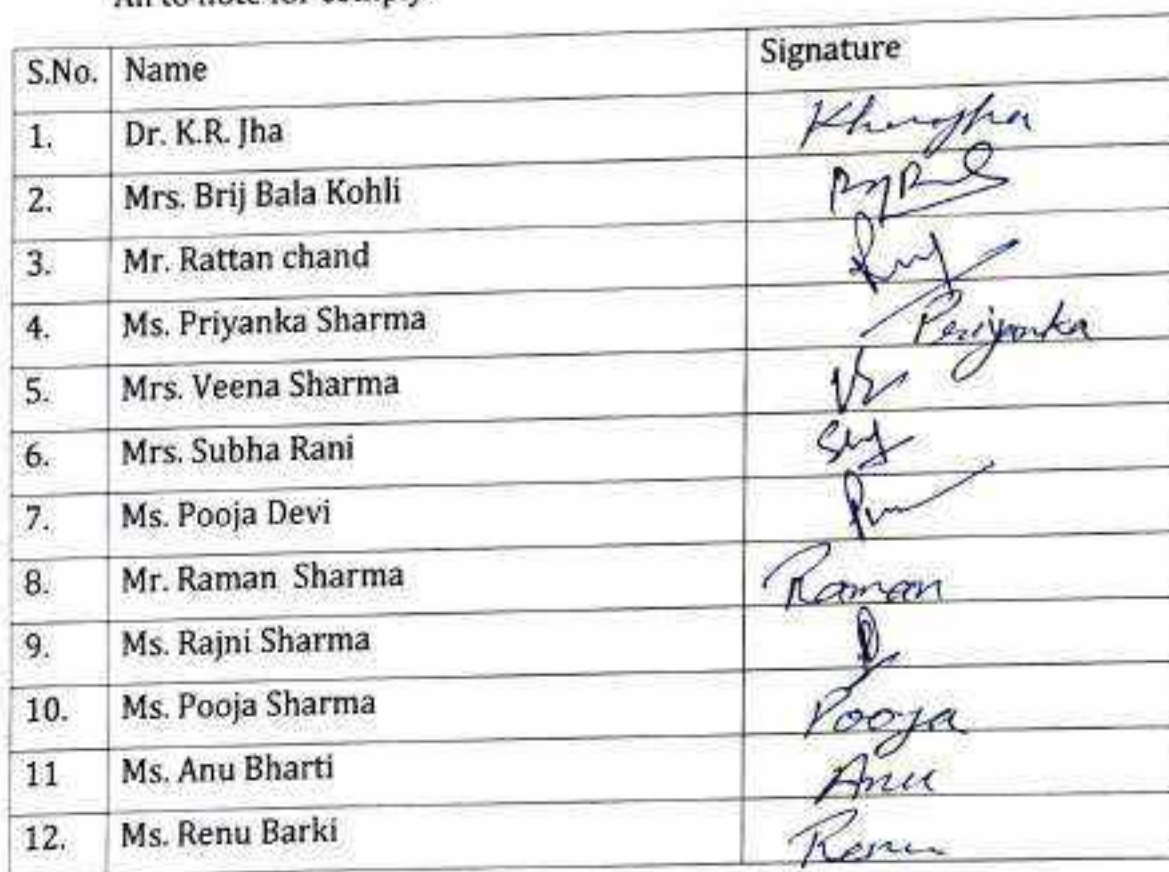 All to note for comply.
S.No. Name Signature
1. Dr. K.R. Jha
2. Mrs. Brij Bala Kohli
3. Mr. Rattan chand
4. Ms. Priyanka Sharma Periyanka
5. Mrs. Veena Sharma
6. Mrs. Subha Rani
7. Ms. Pooja Devi
8. Mr. Raman Sharma Raman
9. Ms. Rajni Sharma
10. Ms. Pooja Sharma Pooja
11 Ms. Anu Bharti Anu
12. Ms. Renu Barki Renu